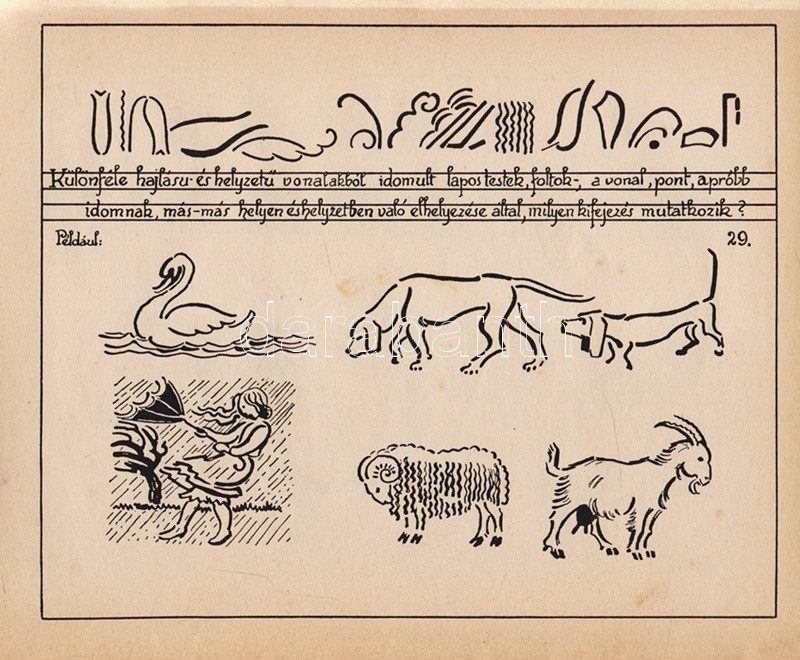 Különféle hajlásu- és helyzetü vonalakból idomult lapos testek, foltok-, a vonal, pont, apróbb
idomnak, más-más helyen és helyzetben való elhelyezése által, milyen kifejezés mutatkozik?
Például:
29.
darabanth